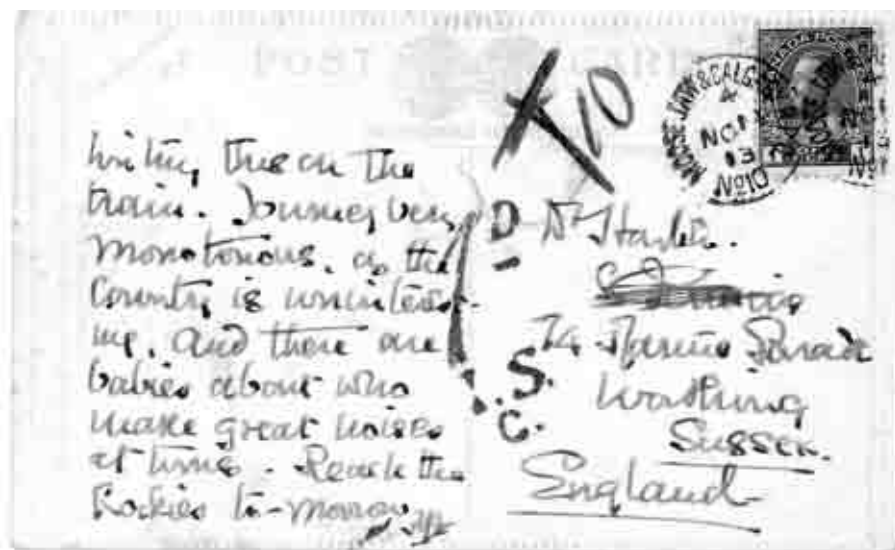 Writing this on the
train. Journey very
monotonous, as the
Country is uninterest-
ing, and there are
babies about who
make great noises
at times. Reach the
Rockies to-morrow
T/10
D
S.
C.
MOOSE JAW & CALG
4
NO 1
13
Dr
74 Marine Parade
Worthing
Sussex.
England